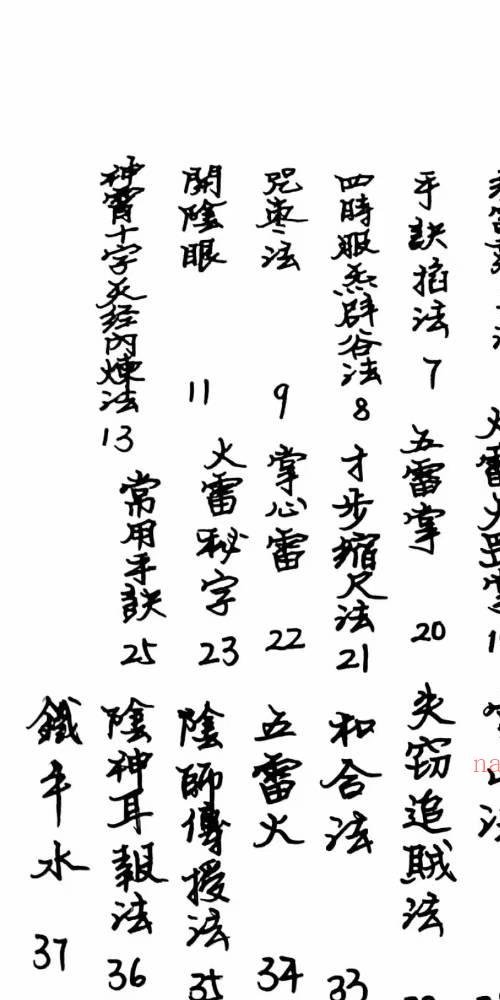 手訣掐法 7
四時服炁辟谷法 8
咒棗法 9
開陰眼 11
神霄十字天经内煉法 13
五雷掌 20
寸步缩尺法 21
掌心雷 22
火雷秘字 23
常用手訣 25
失窃追賊法
和合法 33
五雷火 34
陰師傳授法 35
陰神耳報法 36
鐵牛水 37
na